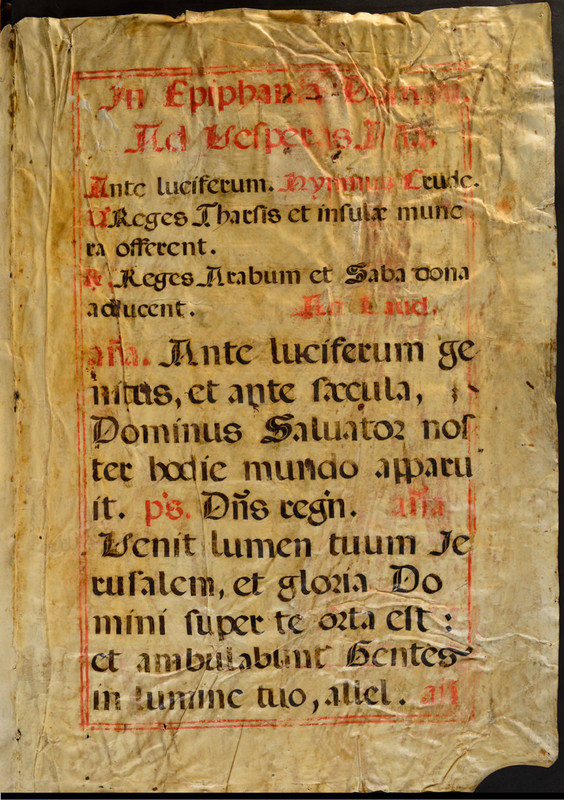 In Epiphania Domini.
Ad Vesperas Añã.
Ante luciferum. Hymnus Crude.
℣ Reges Tharsis et insulæ mune
ra offerent.
℟ Reges Arabum et Saba dona
adducent. Ad Laud.
aña. Ante luciferum ge
nitus, et ante sæcula,
Dominus Saluator nos
ter hodie mundo apparu
it. ps. Dñs regñ. aña
Venit lumen tuum Je
rusalem, et gloria Do
mini super te orta est :
et ambulabunt Gentes
in lumine tuo, allel. añ